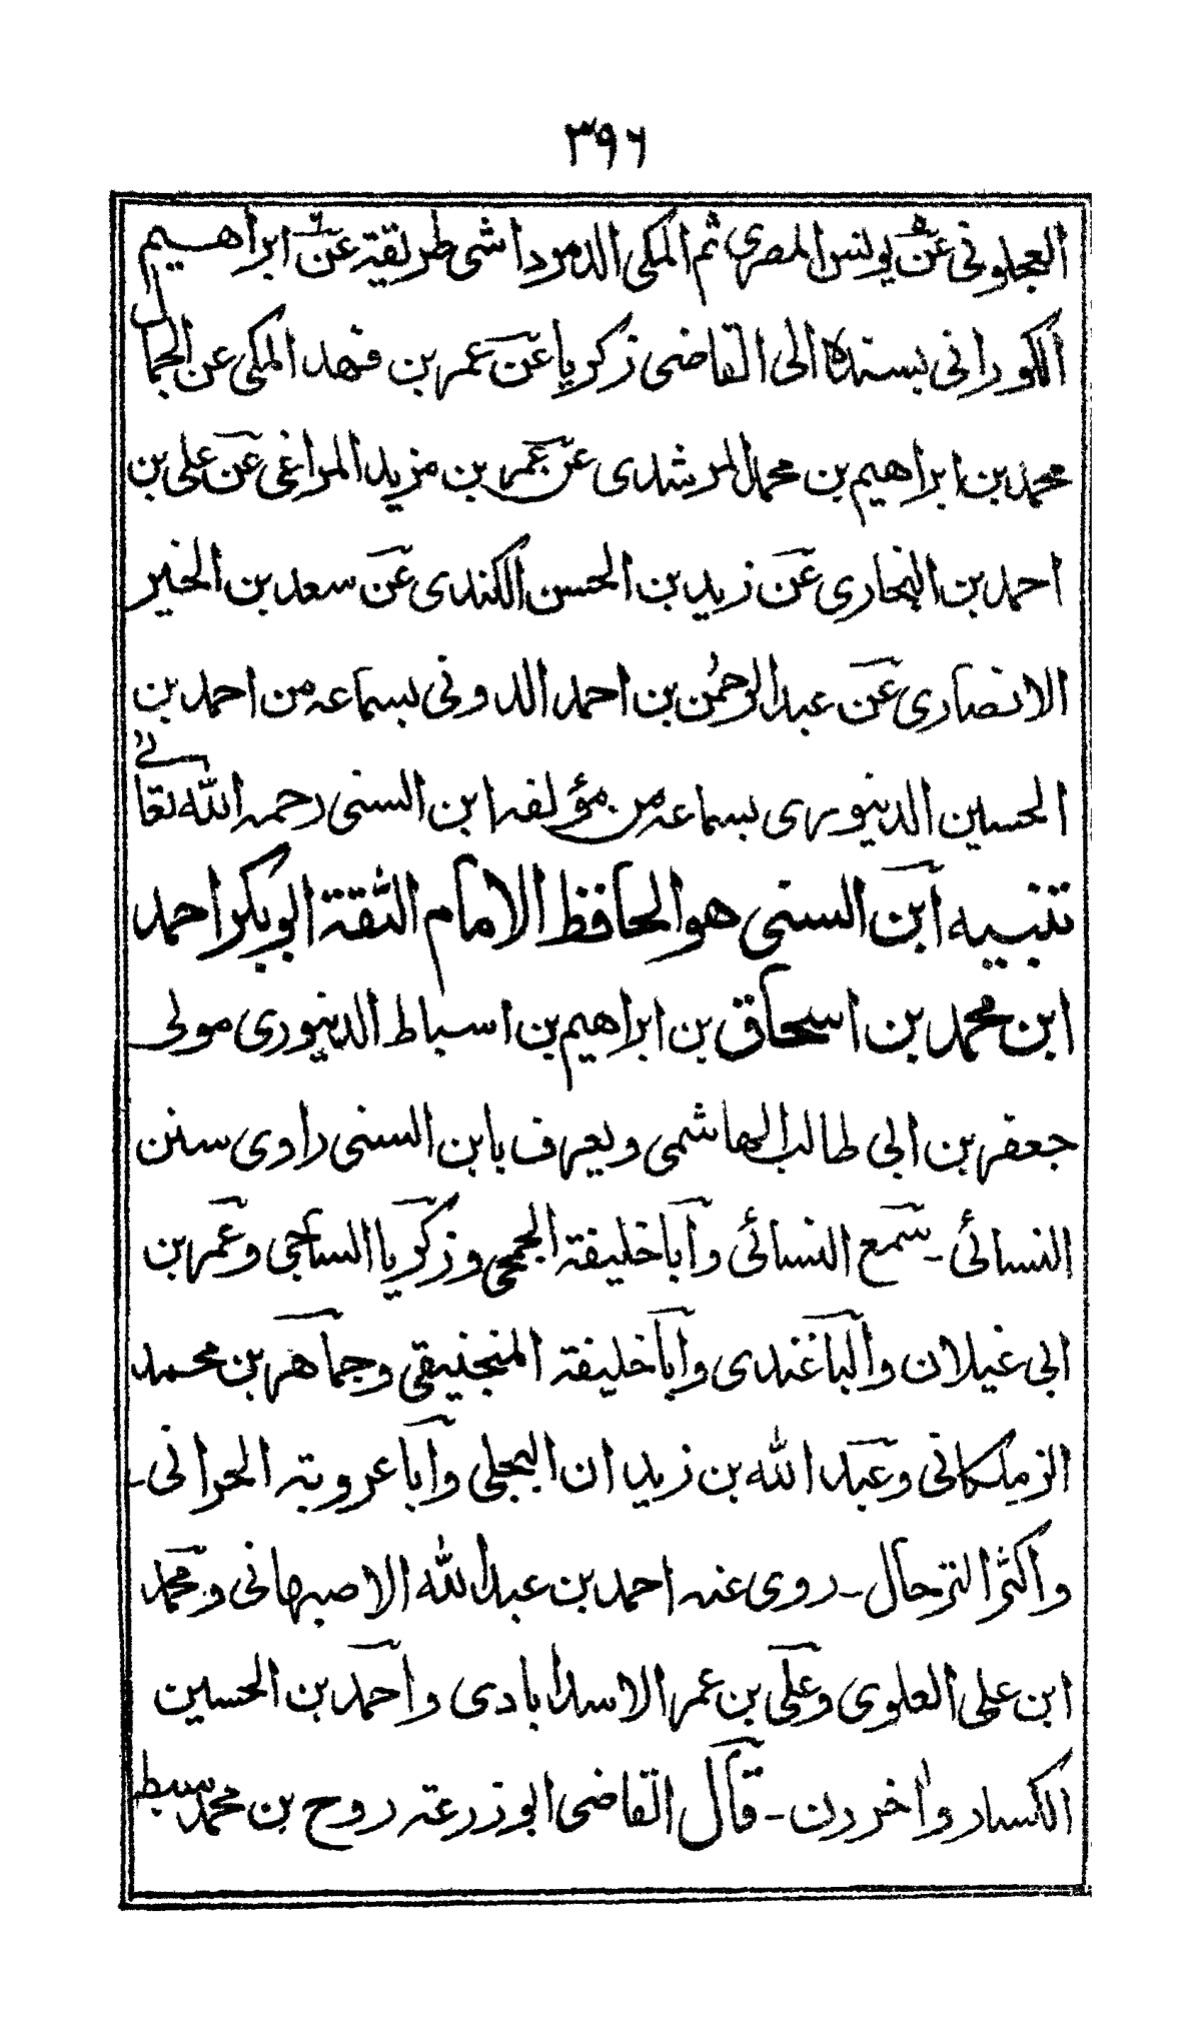 ٣٩٦
العجلونی عن یونس المصری ثم المکی الدمرداشی طریقة عن ابراھیم
الکورانی بسندہ الی القاضی زکریا عن عمر بن فھد المکی عن الجمال
محمد بن ابراھیم بن محمد المرشدی عن عمر بن مزید المراغی عن علی بن
احمد بن البخاری عن زید بن الحسن الکندی عن سعد بن الخیر
الانصاری عن عبد الرحمٰن بن احمد الدونی بسماعہ من احمد بن
الحسین الدینوری بسماعہ من مؤلفہ ابن السنی رحمہ اللّٰہ تعالیٰ
تنبیہ ابن السنی ھو الحافظ الامام الثقة ابو بکر احمد
ابن محمد بن اسحاق بن ابراھیم بن اسباط الدینوری مولی
جعفر بن ابی طالب الھاشمی ویعرف بابن السنی راوی سنن
النسائی ـ سمع النسائی وابا خلیفة الجمحی وزکریا الساجی وعمر بن
ابی غیلان والباغندی وابا خلیفة المنجنیقی وجماھر بن محمد
الزملکانی وعبد اللّٰہ بن زیدان البجلی وابا عروبة الحرانی ـ
واکثر الترحال ـ روی عنہ احمد بن عبد اللّٰہ الاصبھانی ومحمد
ابن علی العلوی وعلی بن عمر الاسدابادی واحمد بن الحسین
الکسار واٰخرون ـ قال القاضی ابو زرعة روح بن محمد سبط